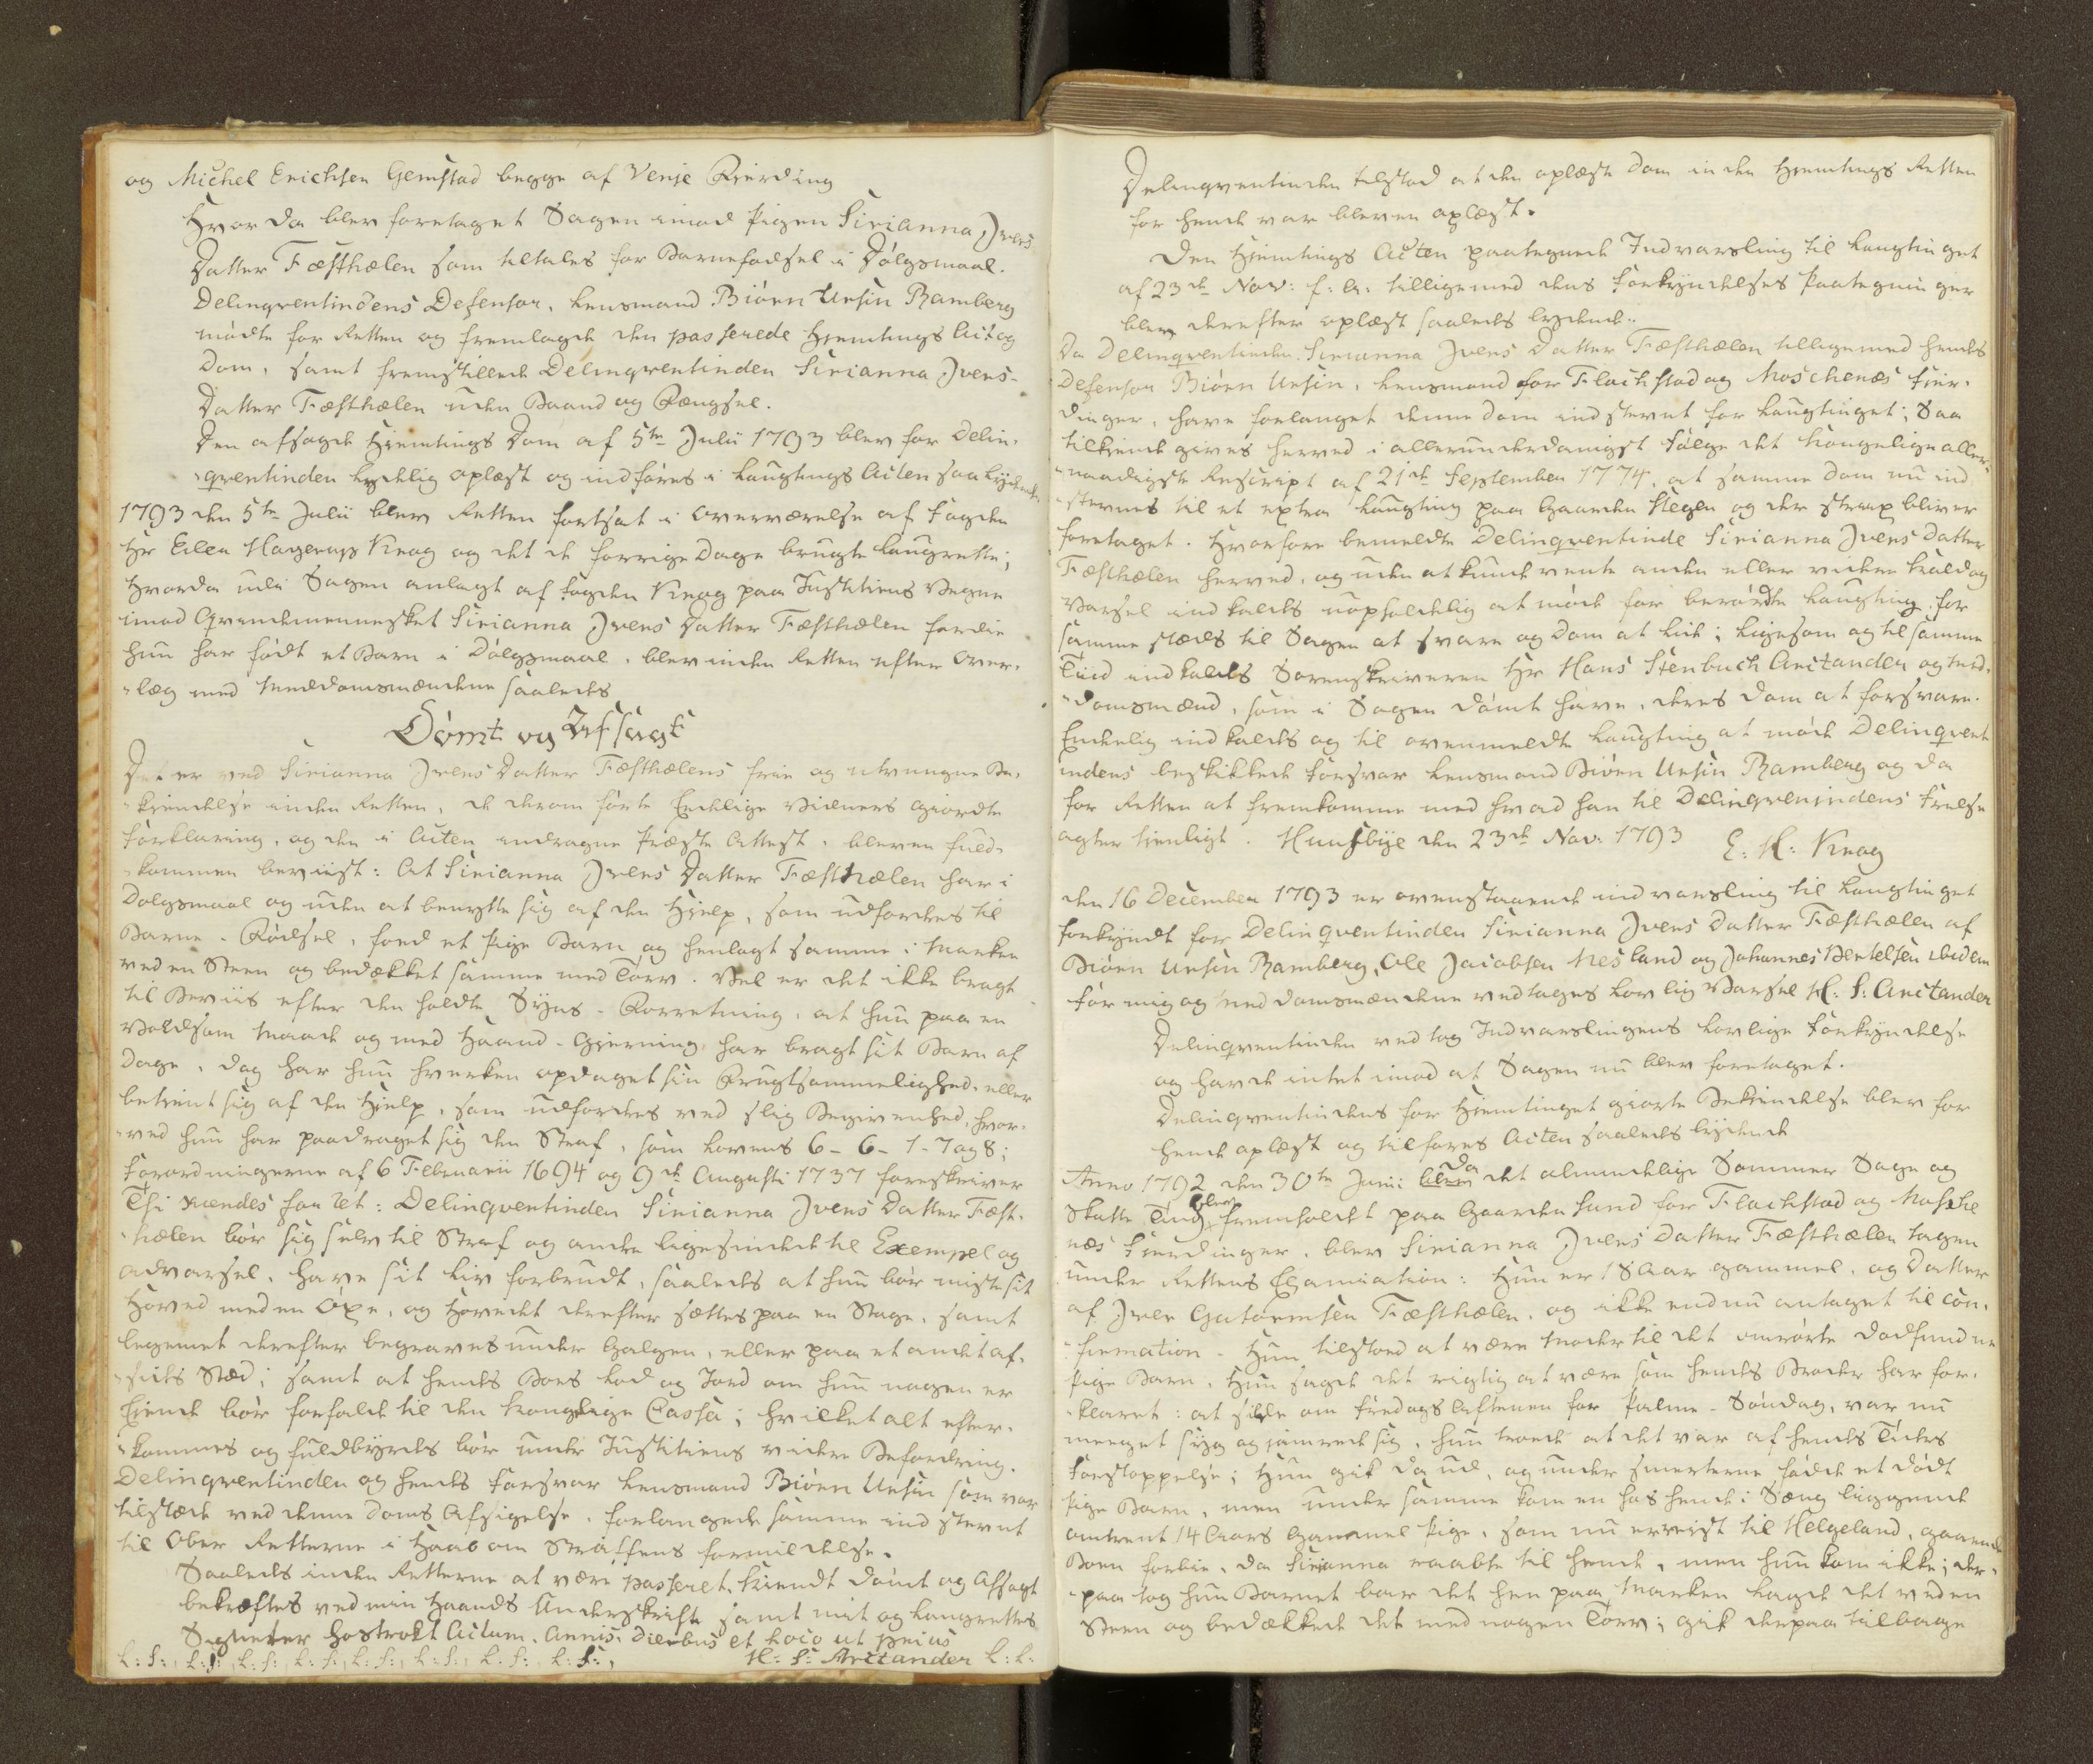 og Michel Erichsen Gemstad begge af Venje Fierding
Hvor da blev foretaget Sagen imod Pigen Sirianna Ivers
Datter Fæsthælen som tiltales for Barnefødsel i Dølgsmaal.
Delinqventindens Defensor, Lensmand Biörn Ursin Bamberg
mödte for Retten og fremlagde den passerede Hiemtings Act og
Dom, samt fremstillede Delinqventinden Sirianna Ivers-
Datter Fæsthælen uden Baand og Fængsel.
Den afsagde Hiemtings Dom af 5te Julii 1793 blev for Delin-
qventinden tydelig oplæst og indføres i Laugtings Acten saa lydende
1793 den 5te Julii blev Retten fortsat i Overværelse af Fogden
Hr Eiler Hagerup Krog og det de forrige Dage brugte Laugrette;
hvorda udi Sagen anlagt af Fogden Krog paa Justitiens Vegne
imod Qvindemennesket Sirianna Ivers Datter Fæsthælen fordie
hun har födt et Barn i Dölgsmaal, blev inden Retten efter Over-
læg med Meddomsmændene saaledes
Dömt og Afsagt
Det er ved Sirianna Ivers Datter Fæsthælens frie og utvungne Be-
kiendelse inden Retten, de derom förte Eedlige Vidners giordte
Forklaring, og den i Acten indragne Præste Attest, bleven fuld-
kommen beviist: At Sirianna Ivers Datter Fæsthælen har i
Dølgsmaal og uden at benytte sig af den Hielp, som udfordres til
Barne-Födsel, fød et Pige Barn og henlagt samme i Marken
ved en Steen og bedækket samme med Törv. Vel er det ikke bragt
til Beviis efter den holdte Syns-Forretning, at hun paa en
voldsom Maade og med Haand-Gierning har bragt sit Barn af
Dage, dog har hun hverken opdaget sin Frugtsommelighed, eller
betient sig af den Hielp, som udfordres ved slig Begivenhed, hvor-
ved hun har paadraget sig den Straf, som Lovens 6-6-1-7 og 8;
Forordningerne af 6 Februarii 1694 og 9de Augusti 1737 foreskriver
Thi kiendes for Ret: Delinqventinden Sirianna Ivers Datter Fæst-
hælen bör sig selv til Straf og andre ligesindede til Exempel og
advarsel, have sit Liv forbrudt, saaledes at hun bör miste sit
Hoved med en Öxe, og Hovedet derefter sættes paa en Stage, samt
Legemet derefter begraves under Galgen, eller paa et andet af-
sides Stæd; samt at hendes Boes Lod og Jord om hun nogen er
Eiende bör forfalde til den Kongelige Cassa; hvilket alt efter-
kommes og fuldbyrdes bör under Justitiens videre Befordring.
Delinqventinden og hendes Forsvar Lensmand Biörn Ursin som var
tilstæde ved denne Doms Afsigelse, forlangede samme ind stevnt
til Ober Retterne i Haab om Straffens formildelse.
Saaledes inden Retterne at være passeret, kiendt dömt og Afsagt
bekræftes ved min Haands Underskrift samt mit og Laugrettes
Signeter hoströkt Actum, Annis, Diebus et loco ut prius
L: S:, L: S:, L: S:, L: S:, L: S:, L: S:, L: S:, L: S:, H: S: Arctander L: L:
Delinqventinden tilstod at den oplæste Dom inden Hiemtings Retten
for hende var bleven oplæst.
Den Hiemtings Acten paategnede Indvarsling til Laugtinget
af 23de Nov: f: A: tilligemed dens Forkyndelses Paategninger
blev derefter oplæst saaledes lydende..
Da Delinqventinden Sirianna Ivers Datter Fæsthælen tilligemed hendes
Defensor Biörn Ursin, Lensmand for Flachstad og Moschenæs Fier-
dinger, have forlanget denne Dom indstevnt for Laugtinget; Saa
tilkiende gives herved i allerunderdanigst Fölge det Kongelige aller-
naadigste Rescript af 21de September 1774, at samme Dom nu ind-
stevnes til et extra Laugting paa Gaarden Stegen og der strax bliver
foretaget. Hvorfore bemeldte Delinqventinde Sirianna Ivers Datter
Fæsthælen herved, og uden at kunde vente anden eller videre Kald og
Varsel indkaldes uopholdelig at møde for berörte Laugting for
samme steds til Sagen at svare og Dom at lide; ligesom og til samme
Tiid indkaldes Sorenskriveren Hr Hans Stenbuch Arctander og Med-
domsmænd, som i Sagen dömt have, deres Dom at forsvare.
Endelig indkaldes og til ovenmeldte Laugting at møde Delinqvent
indens beskikkede Forsvar Lensmand Biörn Ursin Bamberg og da
for Retten at fremkomme med hvad han til Delinqventindens Frelse
agter tienligt. Huusbye den 23de Nov: 1793 E: H: Krog
den 16 December 1793 er ovenstaaende indvarsling til Laugtinget
forkyndt for Delinqventinden Sirianna Ivers Datter Fæsthælen af
Biörn Ursin Bamberg, Ole Jacobsen Nesland og Johannes Bertelsen ibidem
for mig og Meddomsmændene vedtages lovlig Varsel H: S: Arctander
Delinqventinden vedtog Indvarslingens lovlige Forkyndelse
og havde intet imod at Sagen nu blev foretaget.
Delinqventindens for Hiemtinget giorte Bekiendelse blev for
hende oplæst og tilføres Acten saaledes lydende
Anno 1792 den 30te Junii blev Da det almindelige Sommer Sage og
Skatte Ting blev fremholdt paa Gaarden Sund for Flachstad og Mosche
næs Fierdinger, blev Sirianna Ivers Datter Fæsthælen tagen
under Rettens Examination: Hun er 18 Aar gammel, og Datter
af Iver Gutormsen Fæsthælen, og ikke endnu antaget til Con-
firmation. Hun tilstoed at være Moder til det omrörte dödfundne
Pige Barn. Hun sagde det rigtig at være som hendes Broder har for-
klaret: at silde om Fredags Aftenen for Palme-Søndag, var nu
meeget syg og jamrede sig, hun troede at det var af hendes Tiders
Forstoppelse; Hun gik da ud, og under smerterne födde et dödt
Pige Barn, men under samme kom en hos hende i Sæng liggende
omtrent 14 Aars Gammel Pige, som nu er reist til Helgeland, gaaende
Boen forbie, da Sirianna raabte til hende, men hun kom ikke; der-
paa tog hun Barnet bar det hen paa Marken lagde det ved en
Steen og bedækkede det med nogen Törv; gik derpaa tilbage